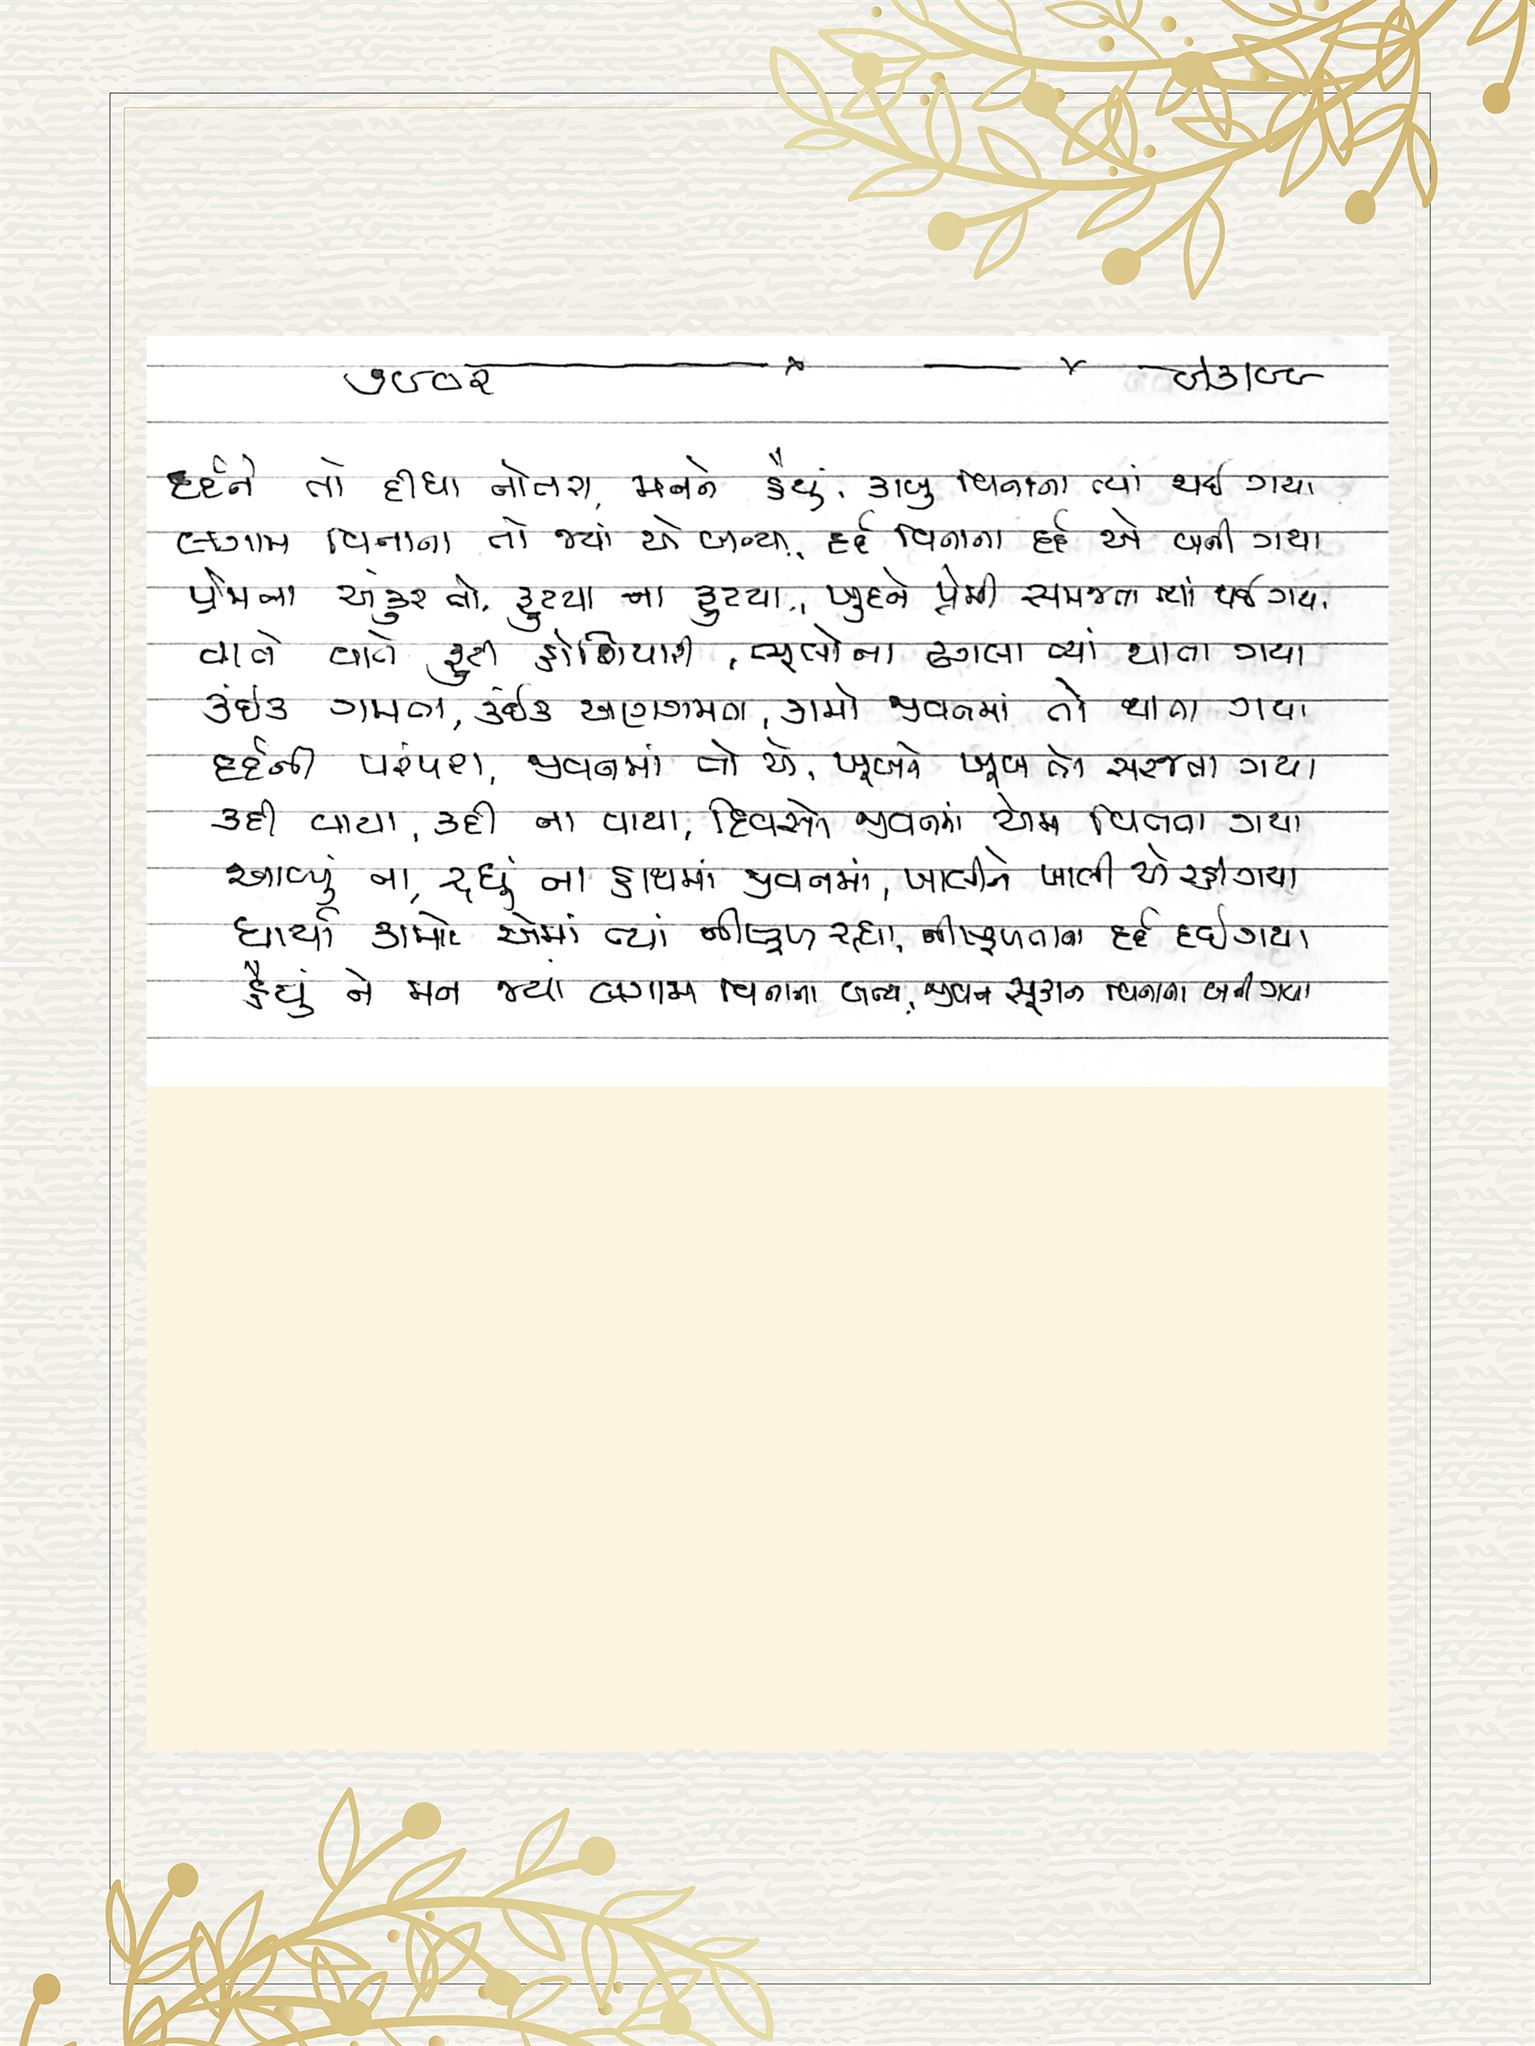 દર્દને તો દીધા નોતરા, મનને હૈયું, કાબુ વિનાના ત્યાં થઈ ગયા
લગામ વિનાના તો જ્યાં એ બન્યા, દર્દ વિનાના દર્દ એ બની ગયા
પ્રેમના અંકુર તો, ફુટયા ના ફુટયા, ખુદને પ્રેમી સમજતા ત્યાં થઈ ગયા
વાતે વાતે ફુટી હોશિયારી, ભૂલોના ઢગલા ત્યાં થાતા ગયા
કંઈક ગમતા, કંઈક અણગમતા, કામો જીવનમાં તો થાતા ગયા
દર્દની પરંપરા, જીવનમાં તો એ, ખૂબને ખૂબ તો સરજતા ગયા
કદી વાયા, કદી ના વાયા, દિવસો જીવનમાં એમ વિતતા ગયા
આવ્યું ના, રહ્યું ના હાથમાં જીવનમાં, ખાલીને ખાલી એ રહી ગયા
ધાર્યા કામો એમાં ત્યાં નીષ્ફળ રહ્યા, નીષ્ફળતાના દર્દ દઈ ગયા
હૈયું ને મન જ્યાં લગામ વિનાના બન્યા, જીવન સૂકાન વિનાના બની ગયા